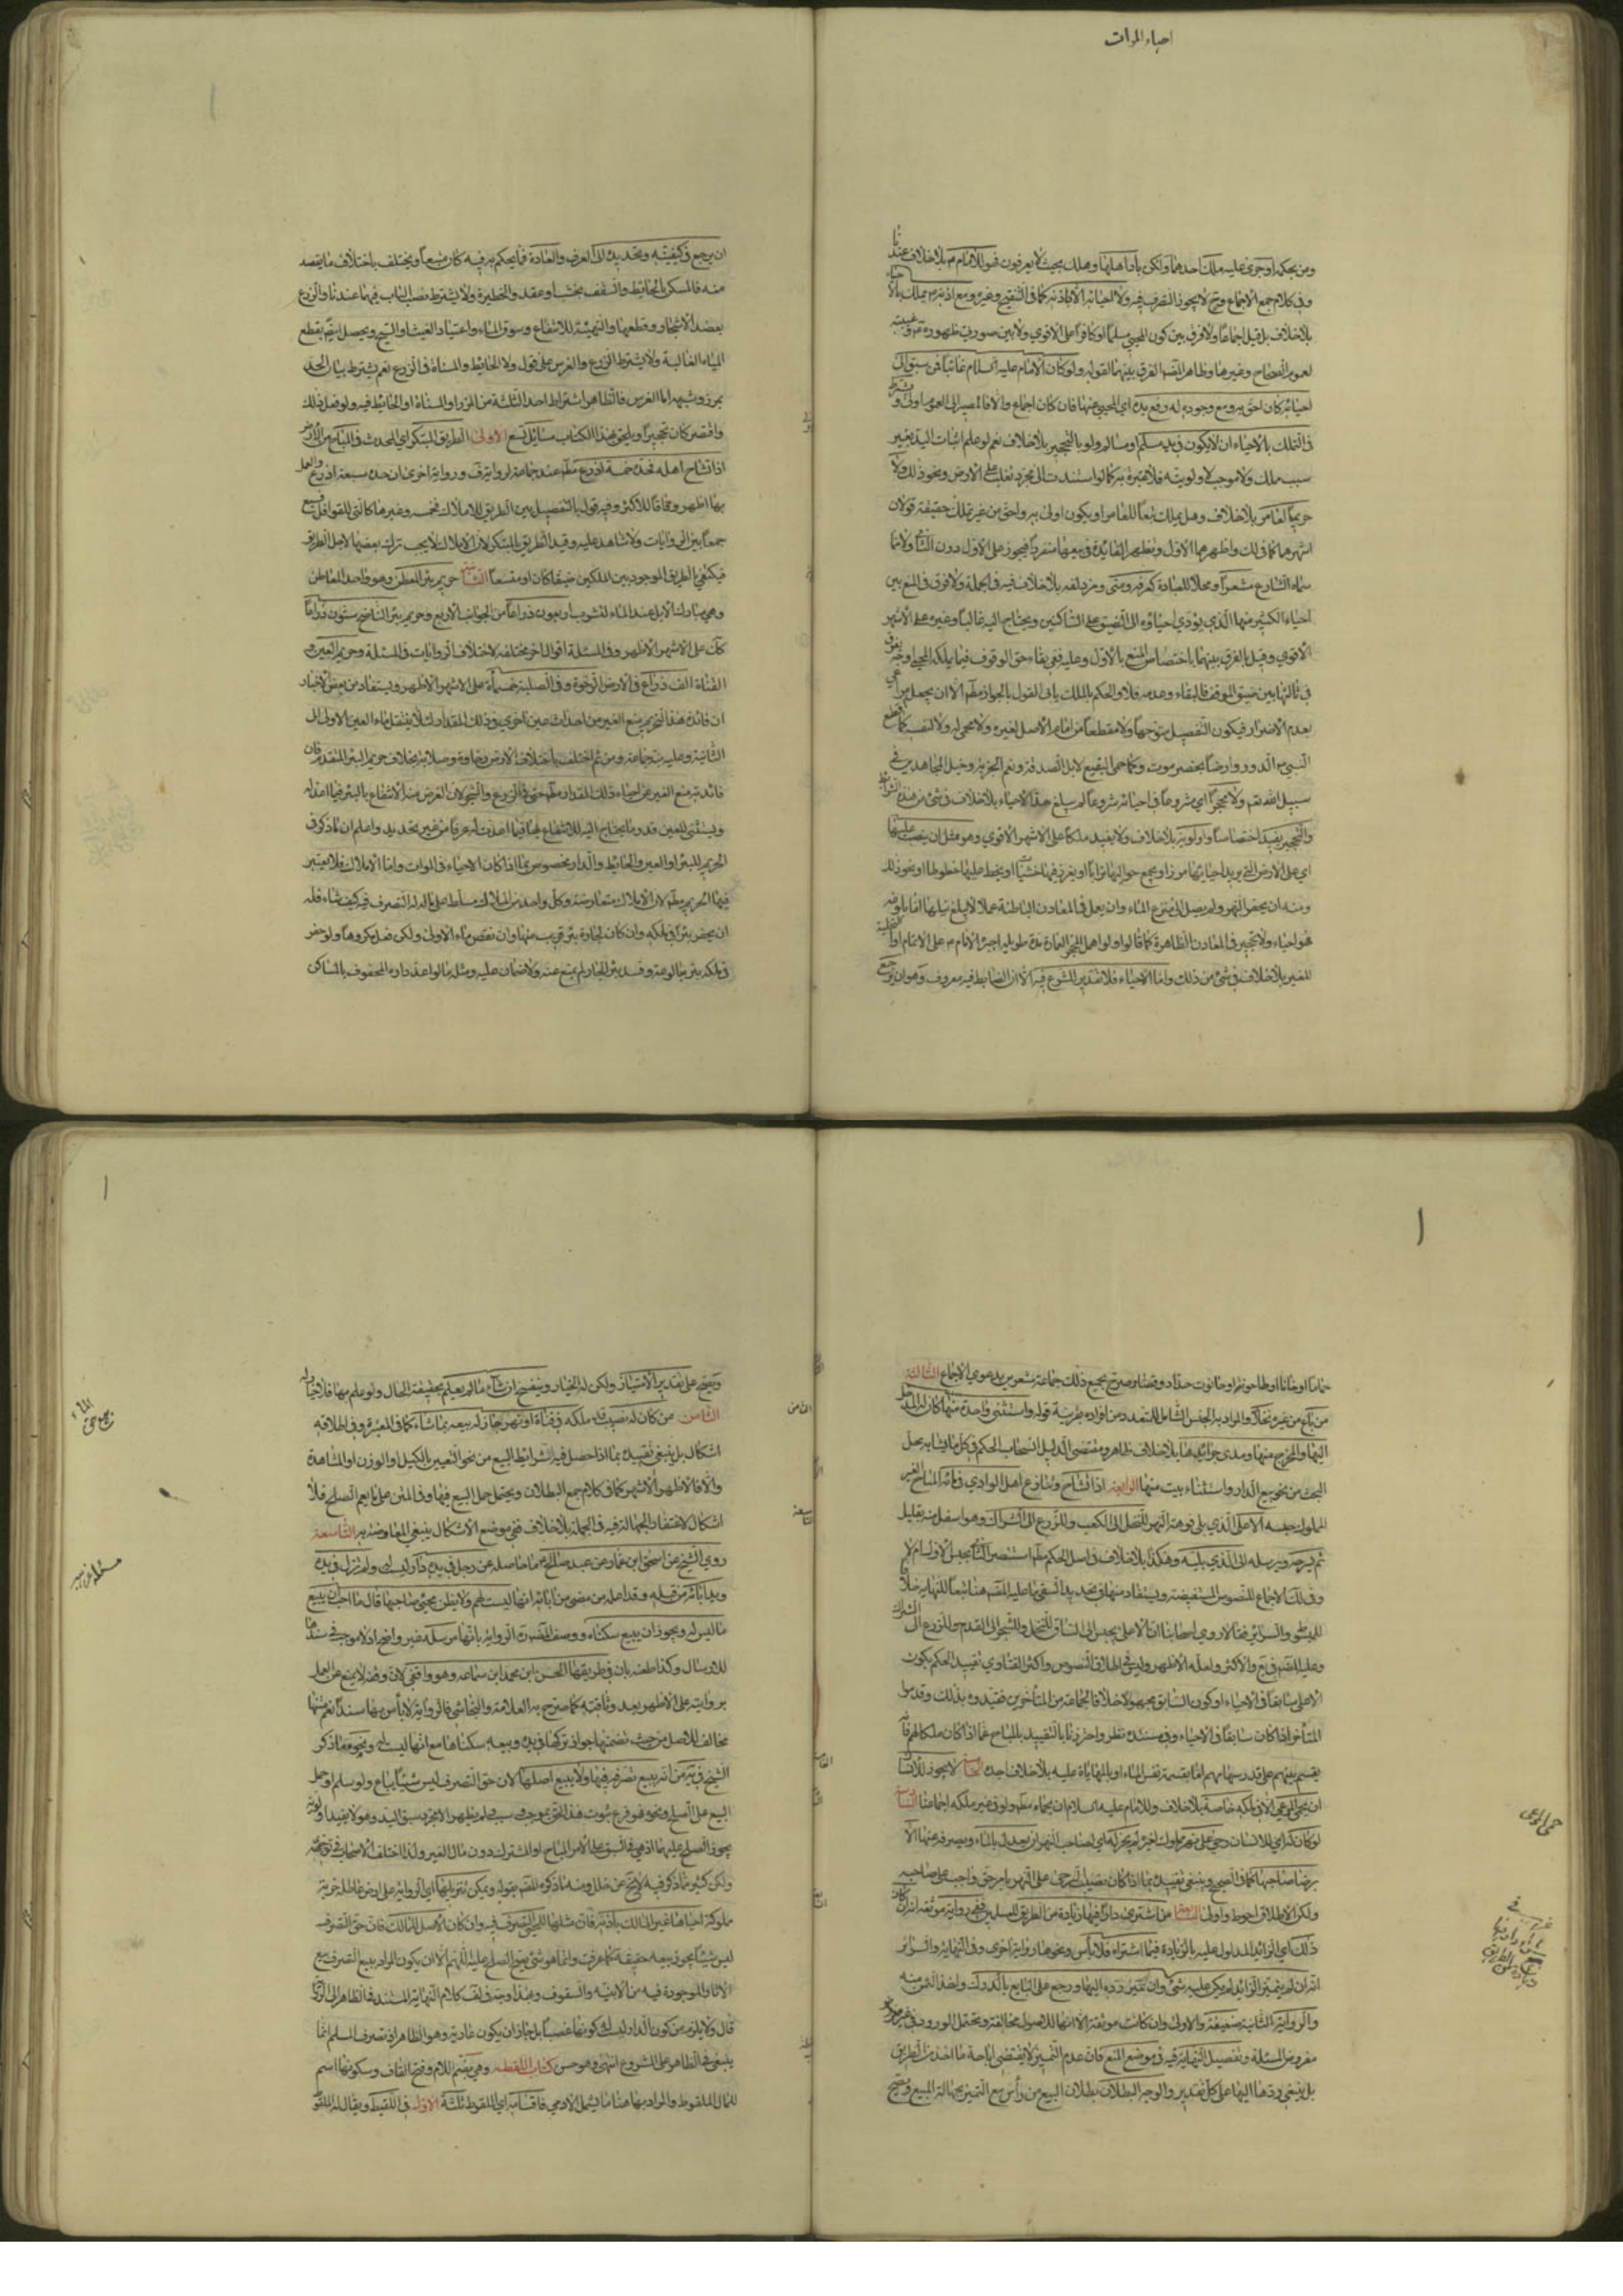 احياء الموات
ومن بحكمه او جرى عليه ملك احدهما ولكن باد اهلها وهلك بحيث لا يعرفون فهو للامام م بلا خلاف عندنا
وفي كلام جمع الاجماع و ح لا يجوز التصرف فيه ولا احيائه الا باذنه كما في التنقيح وغيره ومع اذنه م يملك بالاحياء
بلا خلاف بل قيل اجماعا ولا فرق بين كون المحيي مسلما او كافرا على الاقوى ولا بين صورتي ظهوره م وغيبته
لعموم الصحاح وغيرها وظاهر المصنف الفرق بينهما لقوله ولو كان الامام عليه السلام غائبا فمن سبق الى
احيائه كان احق به ومع وجوده له رفع يده اي المحيي عنها فان كان اجماع والا فالمصير الى العموم اولى ويشترط
في التملك بالاحياء ان لا يكون في يد مسلم او مسالم ولو بالتحجير بلا خلاف نعم لو علم اثبات اليد بغير
سبب ملك ولا موجب لاولويته فلا عبرة به كما لو استندت الى مجرد تغلب على الارض ونحو ذلك ولا
حريما لعامر بلا خلاف وهل يملك تبعا للعامر او يكون اولى به واحق من غير تملك حقيقة قولان
اشهرهما كما في لك واظهرهما الاول وتظهر الفائدة في بيعها منفردا فيجوز على الاول دون الثاني ولا مما
سماه الشارع مشعرا ومحلا للعبادة كعرفة ومنى ومزدلفه بلا خلاف فيه في الجملة ولا فرق في المنع بين
احياء الكثير منها الذي يؤدي احياؤه الى الضيق على الناسكين ويحتاج اليه غالبا وغيره على الاشهر
الاقوى وقيل بالفرق بينهما باختصاص المنع بالاول وعليه ففي بقاء حق الوقوف فيما يملكه المحيي اوجه يفرق
في ثالثها بين ضيق الموقف فالبقاء وعدمه فلا والحكم بالملك يابى القول بالجواز مطلقا الا ان يجعل مراعى
بعدم الاضرار فيكون التفصيل متوجها ولا مقطعا من امام الاصل لغيره ولا محمى له ولا لنفسه كما اقطع
النبي ص الدور وارضا بحضرموت وكما حمى البقيع لابل الصدقة ونعم الجزية وخيل المجاهدين في
سبيل الله نعم ولا محجرا اي مشروعا في احيائه شروعا لم يبلغ حد الاحياء بلا خلاف في شئ من هذه الشرائط
والتحجير يفيد اختصاصا واولوية بلا خلاف ولا يفيد ملكا على الاشهر الاقوى وهو مثل ان ينصب عليها
اي على الارض التي يريد احيائها مرزا او يجمع حواليها ترابا او يغرز فيها خشبا او يخط عليها خطوطا او نحو ذلك
ومنه ان يحفر النهر ولم يصل الى منزع الماء وان يعمل في المعادن الباطنة عملا لا يبلغ نيلها اما بلوغه
فهو احياء ولا تحجير في المعادن الظاهرة كما قالوا ولو اهمل المحجر العمارة مدة طويلة اجبره الامام م على الاتمام او التخلية
للغير بلا خلاف في شئ من ذلك واما الاحياء فلا تقدير للشرع فيه الا ان الضابط فيه معروف وهو ان يرجع
ان يرجع في كيفيته وتحديده الى العرف والعادة فما يحكم به فيه كان متبعا ويختلف باختلاف ما يقصد
منه فالمسكن بالحائط والسقف بخشب او عقد والحظيرة ولا يشترط نصب الباب فيهما عندنا والزرع
بعضد الاشجار وقطعها والتهيئة للانتفاع وسوق الماء واعتياد الغيث او السيح ويحصل ايضا بقطع
المياه الغالبة ولا يشترط الزرع والغرس على قول ولا الحائط والمسناة في الزرع نعم يشترط بيان الحد
بمرز وشبهه اما الغرس فالظاهر اشتراط احد الثلثة من المرز او المسناة او الحائط فيه ولو فعل ذلك
واقتصر كان تحجيرا ويلحق بهذا الكتاب مسائل تسع الاولى الطريق المبتكر اي المحدث في المباح من الارض
اذا تشاح اهله فحده خمسة اذرع مطلقا عند جماعة لرواية وفي رواية اخرى ان حده سبعة اذرع والعمل
بها اظهر وفاقا للاكثر وفيه قول بالتفصيل بين الطريق للاملاك فخمسة وغيرها كالتي للقوافل فسبع
جمعا بين الروايات ولا شاهد عليه وقيد الطريق بالمبتكر لان الاملاك لا يجب ترك بعضها لاجل الطريق
فيكتفى بالطريق الموجود بين الملكين ضيقا كان او متسعا الثانية حريم بئر المعطن وهو واحد المعاطن
وهي مبارك الابل عند الماء لتشرب اربعون ذراعا من الجوانب الاربع وحريم بئر الناضح ستون ذراعا
كك على الاشهر الاظهر وفي المسئلة اقوال اخر مختلفه لاختلاف الروايات في المسئلة وحريم العين و
القناة الف ذراع في الارض الرخوة وفي الصلبة خمسمأة على الاشهر الاظهر ويستفاد من بعض الاخبار
ان فائدة هذا الحريم منع الغير من احداث عين اخرى في ذلك المقدار لئلا ينتقل ماء العين الاولى الى
الثانية وعليه نبه جماعة ومن ثم اختلف باختلاف الارض رخاوة وصلابة بخلاف حريم البئر المتقدم فان
فائدته منع الغير عن احياء ذلك المقدار مطلقا حتى في الزرع والشجر لان الغرض منه الانتفاع بالبئر فيما اعد له
ويستثنى للعين قدر ما يحتاج اليه للانتفاع بها فيما اعدت له عرفا من غير تحديد واعلم ان ما ذكر في
الحريم للبئر او العين والحائط والدار مخصوص بما اذا كان الاحياء في الموات واما الاملاك فلا يعتبر
فيها الحريم مطلقا لان الاملاك متعارضة وكل واحد من الملاك مسلط على ماله له التصرف فيه كيف شاء فله
ان يحفر بئرا في ملكه وان كان لجاره بئر قريب منها وان نقص ماء الاولى ولكن فعل مكروها ولو حفر
في ملكه بئر بالوعة وفسد بئر الجار لم يمنع عنه ولا ضمان عليه ومثله ما لو اعد داره المحفوف بالمساكن
حماما او خانا او طاحونة او حانوت حداد او قصار وصرح بجميع ذلك جماعة مشعرين بدعوى الاجماع الثالثة
من باع من غيره نخلا والمراد به الجنس الشامل للمتعدد من افراده بقرينة قوله واستثنى واحدة منها كان له المدخل
اليها والمخرج منها ومدى جرائدها بلا خلاف ظاهر ومقتضى الدليل انسحاب الحكم في كل ما يشابه محل
البحث من نحو بيع الدار واستثناء بيت منها الرابعة اذا تشاح وتنازع اهل الوادي في مائه المباح الغير
المملوك حبسه الاعلى الذي يلي فوهة النهر للنخل الى الكعب وللزرع الى الشراك وهو اسفل منه بقليل
ثم يسرحه ويرسله الى الذي يليه وهكذا بلا خلاف في اصل الحكم
وفي لك الاجماع للنصوص المستفيضة ويستفاد منها في تحديد السقي ما عليه المصنف هنا تبعا للنهاية خلافا
للمبسوط والسرائر فقالا روي اصحابنا ان الاعلى يحبس الى الساق للنخل وللشجر الى القدم وللزرع الى الشراك
وعليه المصنف في يع والاكثر ولعله الاظهر وليس في اطلاق النصوص واكثر الفتاوي تقييد الحكم بكون
الاعلى سابقا في الاحياء او كون السابق مجهولا خلافا لجماعة من المتأخرين فقيدوه بذلك وقدموا
المتأخر اذا كان سابقا في الاحياء وفي مستنده نظر واحترزنا بالتقييد بالمباح عما اذا كان ملكا لهم فانه
يقسم بينهم على قدر سهامهم اما بقسمة نفس الماء او بالمهاياة عليه بلا خلاف اجده الخامسة لا يجوز للانسان
ان يحمي المرعى الا في ملكه خاصة بلا خلاف وللامام عليه السلام ان يحماه مطلقا ولو في غير ملكه اجماعا السادسة
لو كان له اي للانسان رحى على نهر مملوك لغيره لم يجز له اي لصاحب النهر ان يعدل بالماء ويصرفه عنها الا
برضا صاحبها كما في الصحيح وينبغي تقييده بما اذا كان نصب الرحى على النهر بامر حق واجب على صاحبه
ولكن الاطلاق احوط واولى السابعة من اشترى دارا فيها زيادة من الطريق المسلمين ففي رواية موثقه انه ان كان
ذلك اي الزائد المدلول عليه بالزيادة فيما اشتراه فلا بأس ونحوها رواية اخرى وفي النهاية والسرائر
انه ان لم يتميز الزائد لم يكن عليه شئ وان تميز رده اليها ورجع على البايع بالدرك واخذ الثمن منه
والرواية الثانية ضعيفة والاولى وان كانت موثقة الا انها للاصول مخالفة ويحتمل الورود في غير مورد
مفروض المسئلة وتفصيل النهاية فيه في موضع المنع فان عدم التميز لا يقتضي اباحة ما اخذ من الطريق
بل ينبغي ردها اليها على كل تقدير والوجه البطلان بطلان البيع من رأس مع التميز بجهالة المبيع ويصح
ويصح على تقدير الامتياز ولكن له الخيار وينفسخ ان شاء ما لم يعلم بحقيقة الحال ولو علم بها فلا خيار له
الثامن من كان له نصيب في ملكه في قناة او نهر جاز له بيعه بما شاء كما في المعتبرة وفي اطلاقه
اشكال بل ينبغي تقييده بما اذا حصل فيه شرائط البيع من نحو التعيين بالكيل او الوزن او المشاهدة
والا فالاظهر الاشهر كما في كلام جمع البطلان ويحتمل حمل البيع فيها وفي المتن على ما يعم الصلح فلا
اشكال لاغتفار الجهالة فيه في الجملة بلا خلاف ففي موضع الاشكال ينبغي المعاوضة به التاسعة
روى الشيخ عن اسحق ابن عمار عن عبد صالح م ما حاصله عن رجل في يده دار ليست له ولم تزل في يده
ويد آبائه من قبله وقد اعلمه من مضى من آبائه انها ليست لهم ولا يظن يجئ صاحبها قال ما احب ان يبيع
ما ليس له ويجوز ان يبيع سكناه ووصف المصنف الرواية بانها مرسلة غير واضح اذ لا موجب في سندها
للارسال وكذا طعنه بان في طريقها الحسن ابن محمد ابن سماعه وهو واقفي لان وقفه لا يمنع عن العمل
بروايته على الاظهر بعد وثاقته كما صرح به العلامة والنجاشي فالرواية لا بأس بها سندا نعم متنها
مخالف للاصل من حيث تضمنها جواز تركها في يده وبيعه سكناها مع انها ليست له وبنحو ما ذكر
الشيخ في يه من انه يبيع تصرفه فيها ولا يبيع اصلها لان حق التصرف ليس شيئا يباع ولو سلم او حمل
البيع على الصلح ونحوه فهو فرع ثبوت هذا الحق بموجب وسبب ولم يظهر الا مجرد سبق اليد وهو لا يفيد اولوية
يجوز الصلح عليها اذ هي في السبق على الامر المباح او المشترك دون مال الغير ولذا اختلف الاصحاب في توجيهه
ولكن كثير مما ذكر فيه لا يخ عن خلل ومنه ما ذكره المصنف بقوله ويمكن تنزيلها اي الرواية على ارض عاطلة خربة
مملوكة احياها غير المالك باذنه فان مثلها للمحيي التصرف فيه وان كان الاصل للمالك فان حق التصرف
ليس شيئا يجوز بيعه حقيقة كما عرفت وانما هو شئ يصح الصلح عليه اللهم الا ان يكون المراد ببيع التصرف بيع
الآثار الموجودة فيه من الابنية والسقوف وهذا وجه في لف كلام النهاية المستند في الظاهر الى الرواية
قال ولا يلزم من كون الدار ليست له كونها غصبا بل جاز ان يكون عارية وهو الظاهر اذ تصرف المسلم انما
ينبغي في الظاهر على المشروع انتهى وهو حسن كتاب اللقطة وهي بضم اللام وفتح القاف وسكونها اسم
للمال الملقوط والمراد بها هنا ما يشمل الآدمي فاقسامه اي الملقوط ثلثة الاول في اللقيط ويقال له الملقوط
الثامن
تاسعة
حمى المرعى